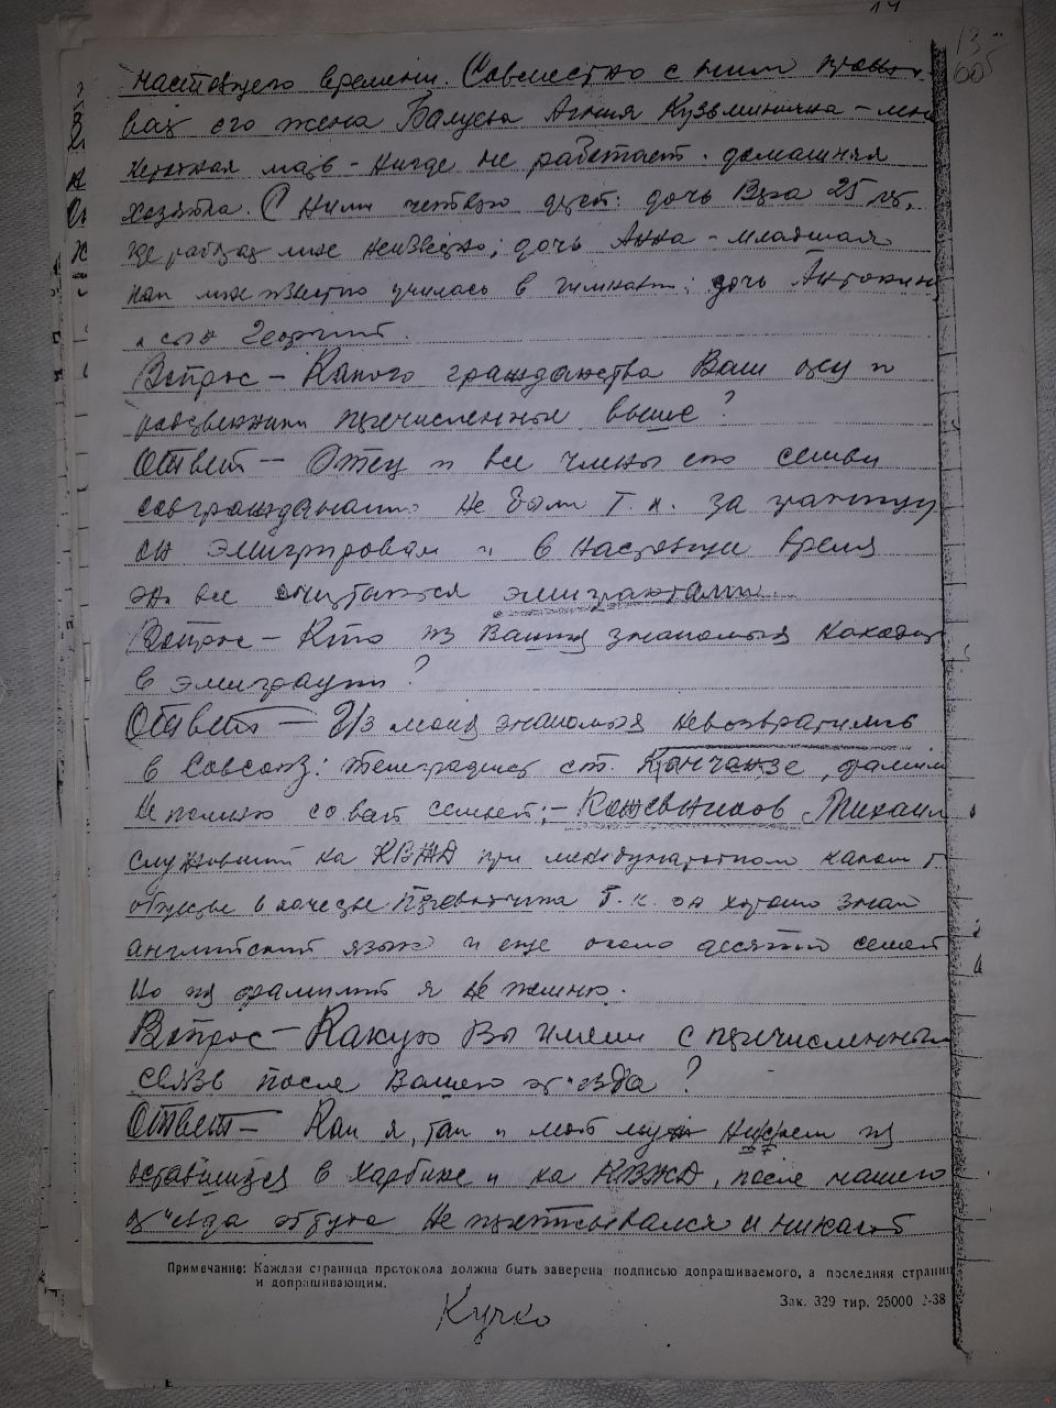 14
13
60
настоящего времени. Совместно с ним прожи
вал его жена Балуева Агния Кузьминична –
мать – нигде не работает. домашняя
хозяйка. С ними четверо детей: дочь Вера 25 лет,
где работает мне неизвестно; дочь Анна – младшая
как мне известно училась в гимназии; дочь Антонин
и сын Георгий.
Вопрос – Какого гражданства Ваш отец и
родственники перечисленные выше?
Ответ – Отец и все члены его семьи
совгражданами не были т.к. за границу
он эмигрировал и в настоящее время
они все считаются эмигрантами.
Вопрос – Кто из Ваших знакомых находит
в эмиграции?
Ответ – Из моих знакомых невозвратились
в Совсоюз: телеграфист ст. фамили
не помню со всей семьей; – Кожевников Михаил
служивший на КВЖД при международном
обществе в качестве переводчика т.к. он хорошо знал
английский язык и еще около десяти семей
но их фамилий я не помню.
Вопрос – Какую Вы имели с перечисленными
связь после Вашего отъезда?
Ответ – Как я, так и мой муж ни с кем из
оставшихся в Харбине и на КВЖД, после нашего
отъезда оттуда не переписывался и никакой
Примечание: Каждая страница протокола должна быть заверена подписью допрашиваемого, а последняя страни
и допрашивающим.
Зак. 329 тир. 25000 -38
Кучко